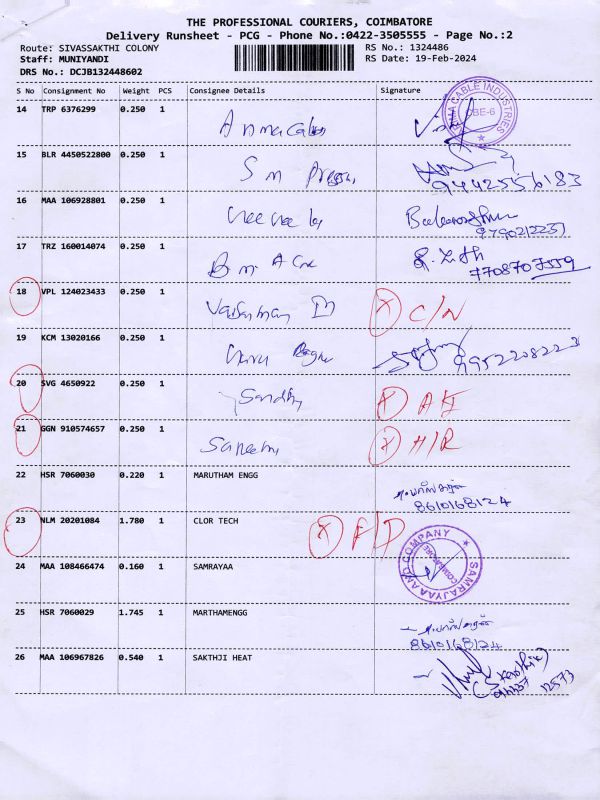 THE PROFESSIONAL COURIERS, COIMBATORE
Delivery Runsheet - PCG - Phone No.:0422-3505555 - Page No.:2
Route: SIVASSAKTHI COLONY RS No.: 1324486
Staff: MUNIYANDI RS Date: 19-Feb-2024
DRS No.: DCJB132448602
S No Consignment No Weight PCS Consignee Details Signature
14 TRP 6376299 0.250 1
CABLE INDUSTRIES
CBE-6
15 BLR 4450522800 0.250 1 S m
9442556183
16 MAA 106928801 0.250 1
9790212251
17 TRZ 160014074 0.250 1 B m
7708707559
18 VPL 124023433 0.250 1 X C/N
19 KCM 13020166 0.250 1
9952208223
20 SVG 4650922 0.250 1 Sandhy X
21 GGN 910574657 0.250 1 X H/R
22 HSR 7060030 0.220 1 MARUTHAM ENGG
8610168124
23 NLM 20201084 1.780 1 CLOR TECH X F/D
24 MAA 108466474 0.160 1 SAMRAYAA
SAMRAJYAA AND COMPANY
COIMBATORE
25 HSR 7060029 1.745 1 MARTHAMENGG
8610168124
26 MAA 106967826 0.540 1 SAKTHJI HEAT
12573